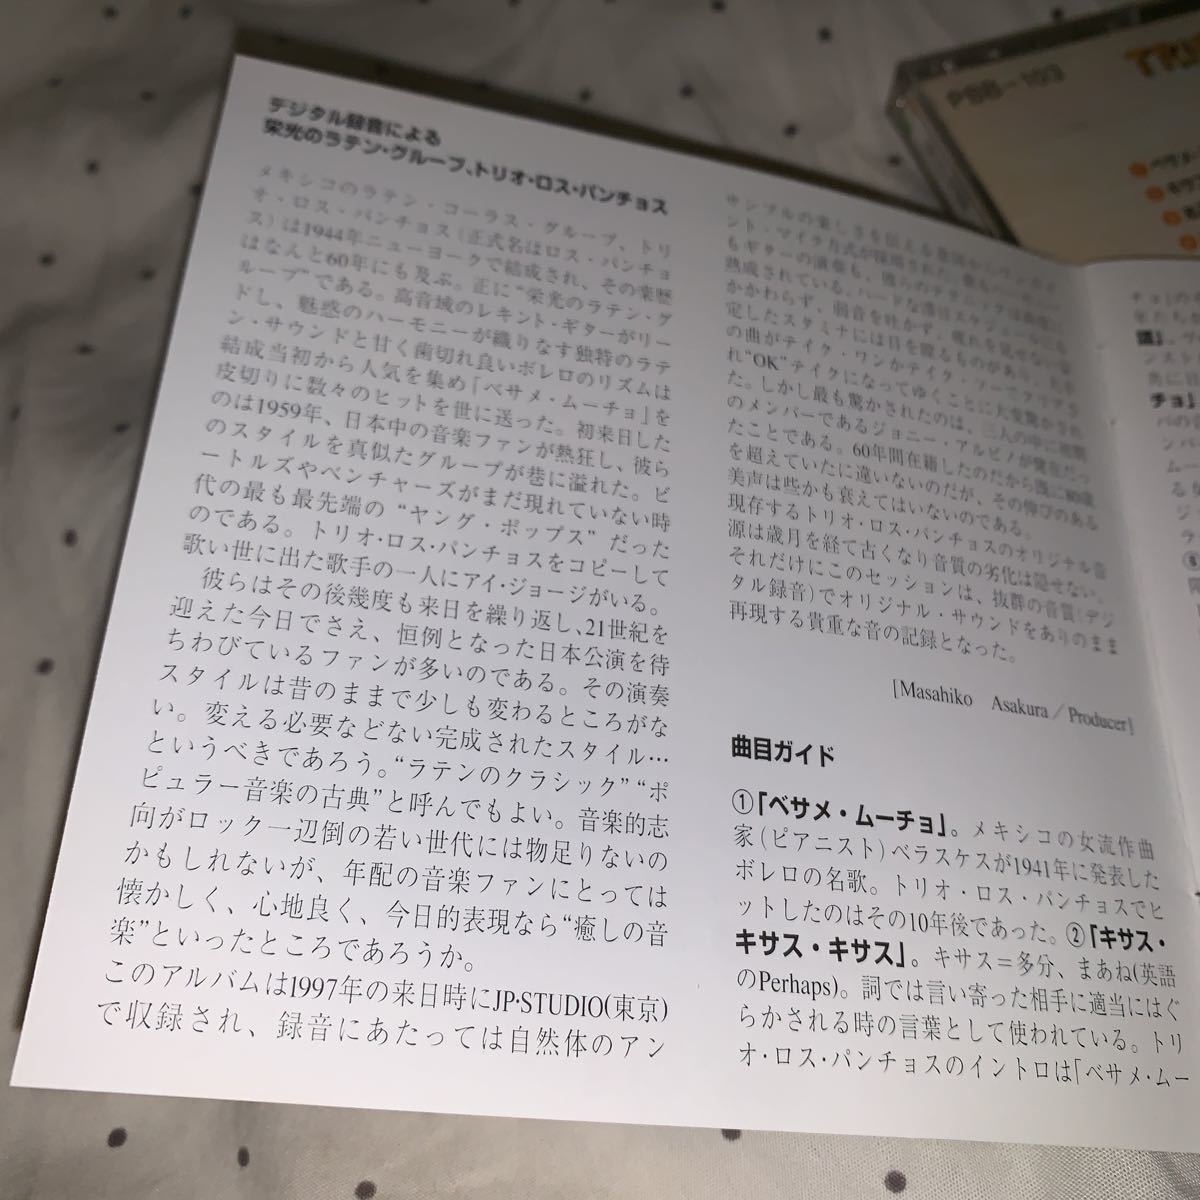 デジタル録音による
栄光のラテン・グループ、トリオ・ロス・パンチョス
メキシコのラテン・コーラス・グループ、トリ
オ・ロス・パンチョス(正式名はロス・パンチョ
ス)は1944年ニューヨークで結成され、その楽歴
はなんと60年にも及ぶ。正に“栄光のラテン・グ
ループ”である。高音域のレキント・ギターがリー
ドし、魅惑のハーモニーが織りなす独特のラテ
ン・サウンドと甘く歯切れ良いボレロのリズムは
結成当初から人気を集め「ベサメ・ムーチョ」を
皮切りに数々のヒットを世に送った。初来日した
のは1959年、日本中の音楽ファンが熱狂し、彼ら
のスタイルを真似たグループが巷に溢れた。ビ
ートルズやベンチャーズがまだ現れていない時
代の最も最先端の“ヤング・ポップス”だった
のである。トリオ・ロス・パンチョスをコピーして
歌い世に出た歌手の一人にアイ・ジョージがいる。
彼らはその後幾度も来日を繰り返し、21世紀を
迎えた今日でさえ、恒例となった日本公演を待
ちわびているファンが多いのである。その演奏
スタイルは昔のままで少しも変わるところがな
い。変える必要などない完成されたスタイル…
というべきであろう。“ラテンのクラシック”“ポ
ピュラー音楽の古典”と呼んでもよい。音楽的志
向がロック一辺倒の若い世代には物足りないの
かもしれないが、年配の音楽ファンにとっては
懐かしく、心地良く、今日的表現なら“癒しの音
楽”といったところであろうか。
このアルバムは1997年の来日時にJP・STUDIO(東京)
で収録され、録音にあたっては自然体のアン
サンブルの楽しさを伝える
ント・マイク方式が採用された。歌も
もギターの演奏も、彼らのテクニックは
熟成されている。ハードな
かかわらず、弱音を吐かず、疲れを見せず、
定したスタミナには目を瞠るものがあった。
の曲がテイク・ワンかテイク・ツーでクリアさ
れ“OK”テイクになってゆくことに大変驚かされ
た。しかし最も驚かされたのは、三人の中に初期
のメンバーであるジョニー・アルビノが健在だっ
たことである。60年間在籍したのだから既に80歳
を超えていたに違いないのだが、その伸びのある
美声は些かも衰えてはいないのである。
現存するトリオ・ロス・パンチョスのオリジナル音
源は歳月を経て古くなり音質の劣化は隠せない。
それだけにこのセッションは、抜群の音質(デジ
タル録音)でオリジナル・サウンドをありのまま
再現する貴重な音の記録となった。
[Masahiko Asakura/Producer]
曲目ガイド
①「ベサメ・ムーチョ」。メキシコの女流作曲
家(ピアニスト)ベラスケスが1941年に発表した
ボレロの名歌。トリオ・ロス・パンチョスでヒ
ットしたのはその10年後であった。②「キサス・
キサス・キサス」。キサス＝多分、まあね(英語
のPerhaps)。詞では言い寄った相手に適当にはぐ
らかされる時の言葉として使われている。トリ
オ・ロス・パンチョスのイントロは「ベサメ・ムー
PBB-103